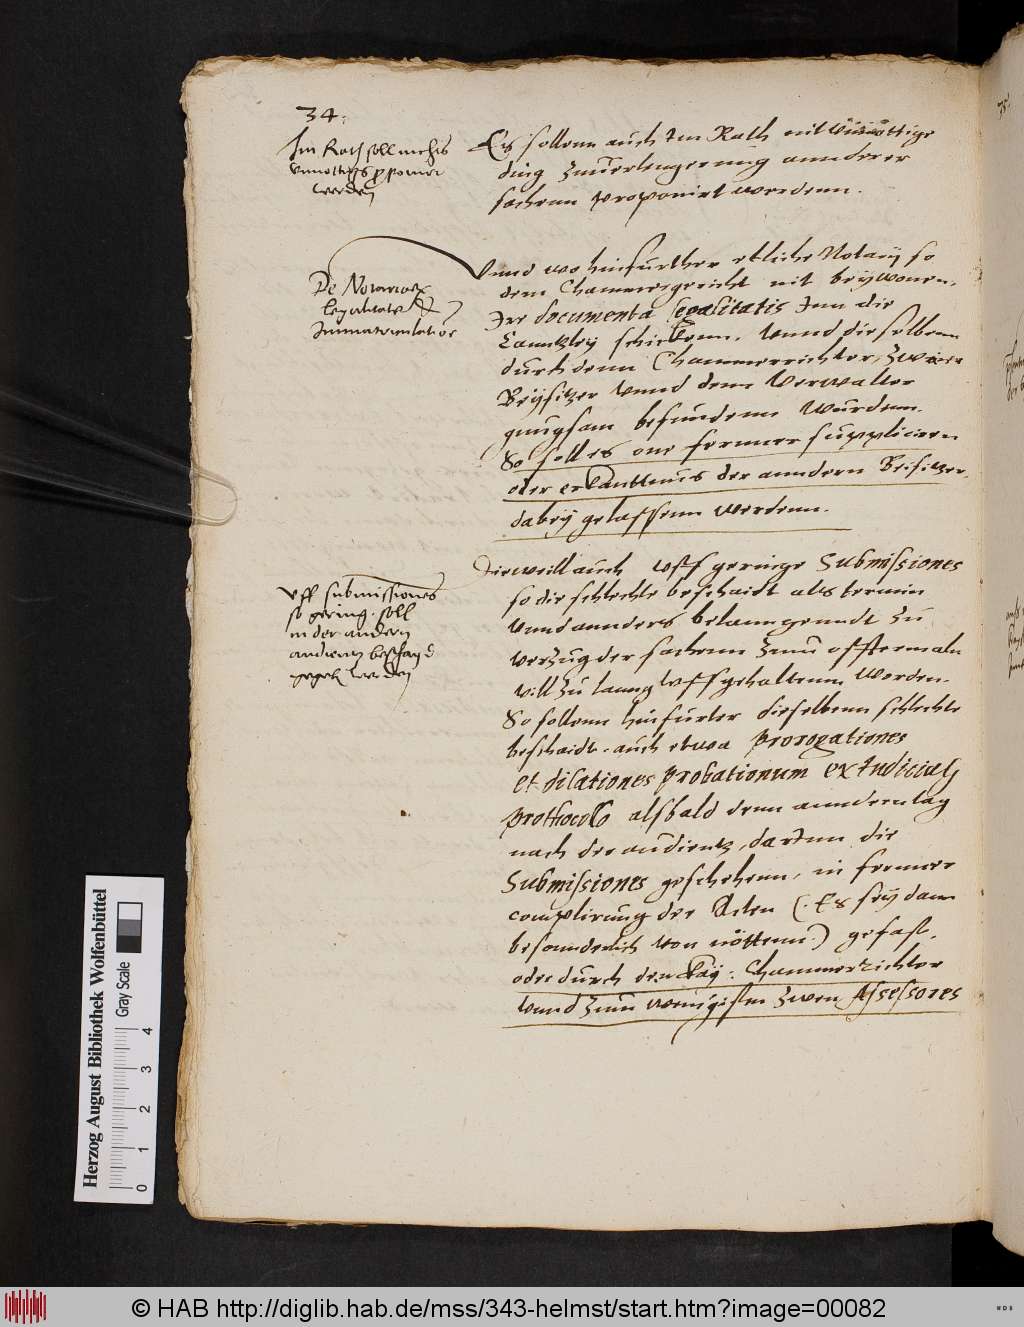 34.
Im Rath soll nichts
vnnottigs proponirt
werden
Es sollenn auch Im Rath nit vnnottige
ding Zuuerlengerung annderer
sachenn proponirt werdenn.
De Notariorum
legalitate et
Immatriculatione
Vnnd wo hinfurther etliche Notarij so
dem Chammergericht nit beywonen,
Ire documenta legalitatis Inn die
Canntzley schickenn, Vnnd dieselbenn
durch denn Chammerrichter, Zween
Beysitzer Vnnd dem Verwalter
gnugsam befundenn Wurdenn.
So soll es one fernner suppliciren
oder erkanttnus der anndern Beisitzer,
dabey gelassenn werdenn.
Vff submissiones
so gering. soll
in der andern
audientz beschayd
gegeben werden
Dieweill auch vff geringe Submissiones
so die schlechte beschaidt als termin
Vnnd annders belanngenndt Zu
verzug der sachenn Zuuofftermaln
will Zu lanng vffgehaltenn werden.
So sollenn hinfurter dieselbenn schlechte
beschaidt. auch etwa prorogationes
et dilationes probationum ex Iudiciali
prothocollo alsbald denn anndern tag
nach der audientz, darInn die
Submissiones geschehenn, in fernner
complirung der Acten (. Es sey dann
besonnderlich von nöttenn) gefast,
oder durch den kay: Chammerrichter
vnnd Zum wenigisten Zwen Assessores
Herzog August Bibliothek Wolfenbüttel
Gray Scale
0 1 2 3 4
© HAB http://diglib.hab.de/mss/343-helmst/start.htm?image=00082